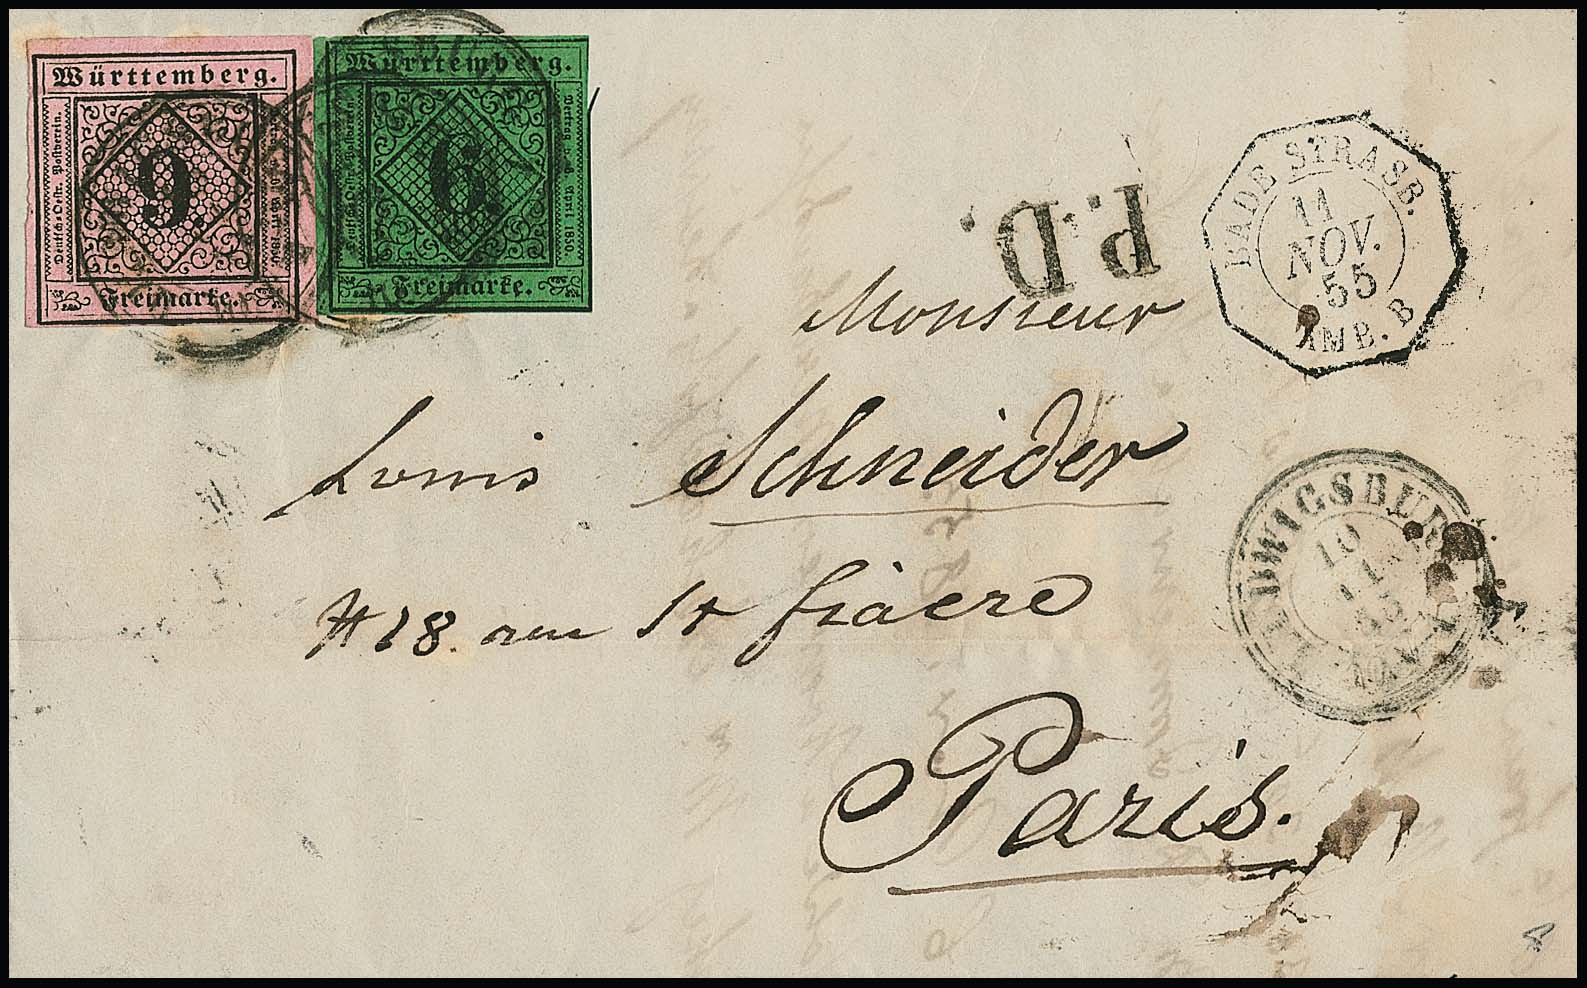 Württemberg.
Deutsch-Oestr. Postverein.
9.
Freimarke.
Württemberg.
Deutsch-Oestr. Postverein.
6.
Vertrag v. 6. April 1850.
Freimarke.
P.D.
BADE STRASB.
11
NOV.
55
AMB. B
Monsieur
Louis Schneider
LUDWIGSBURG
10
11
55
#18. rue St fiacre
Paris.
8